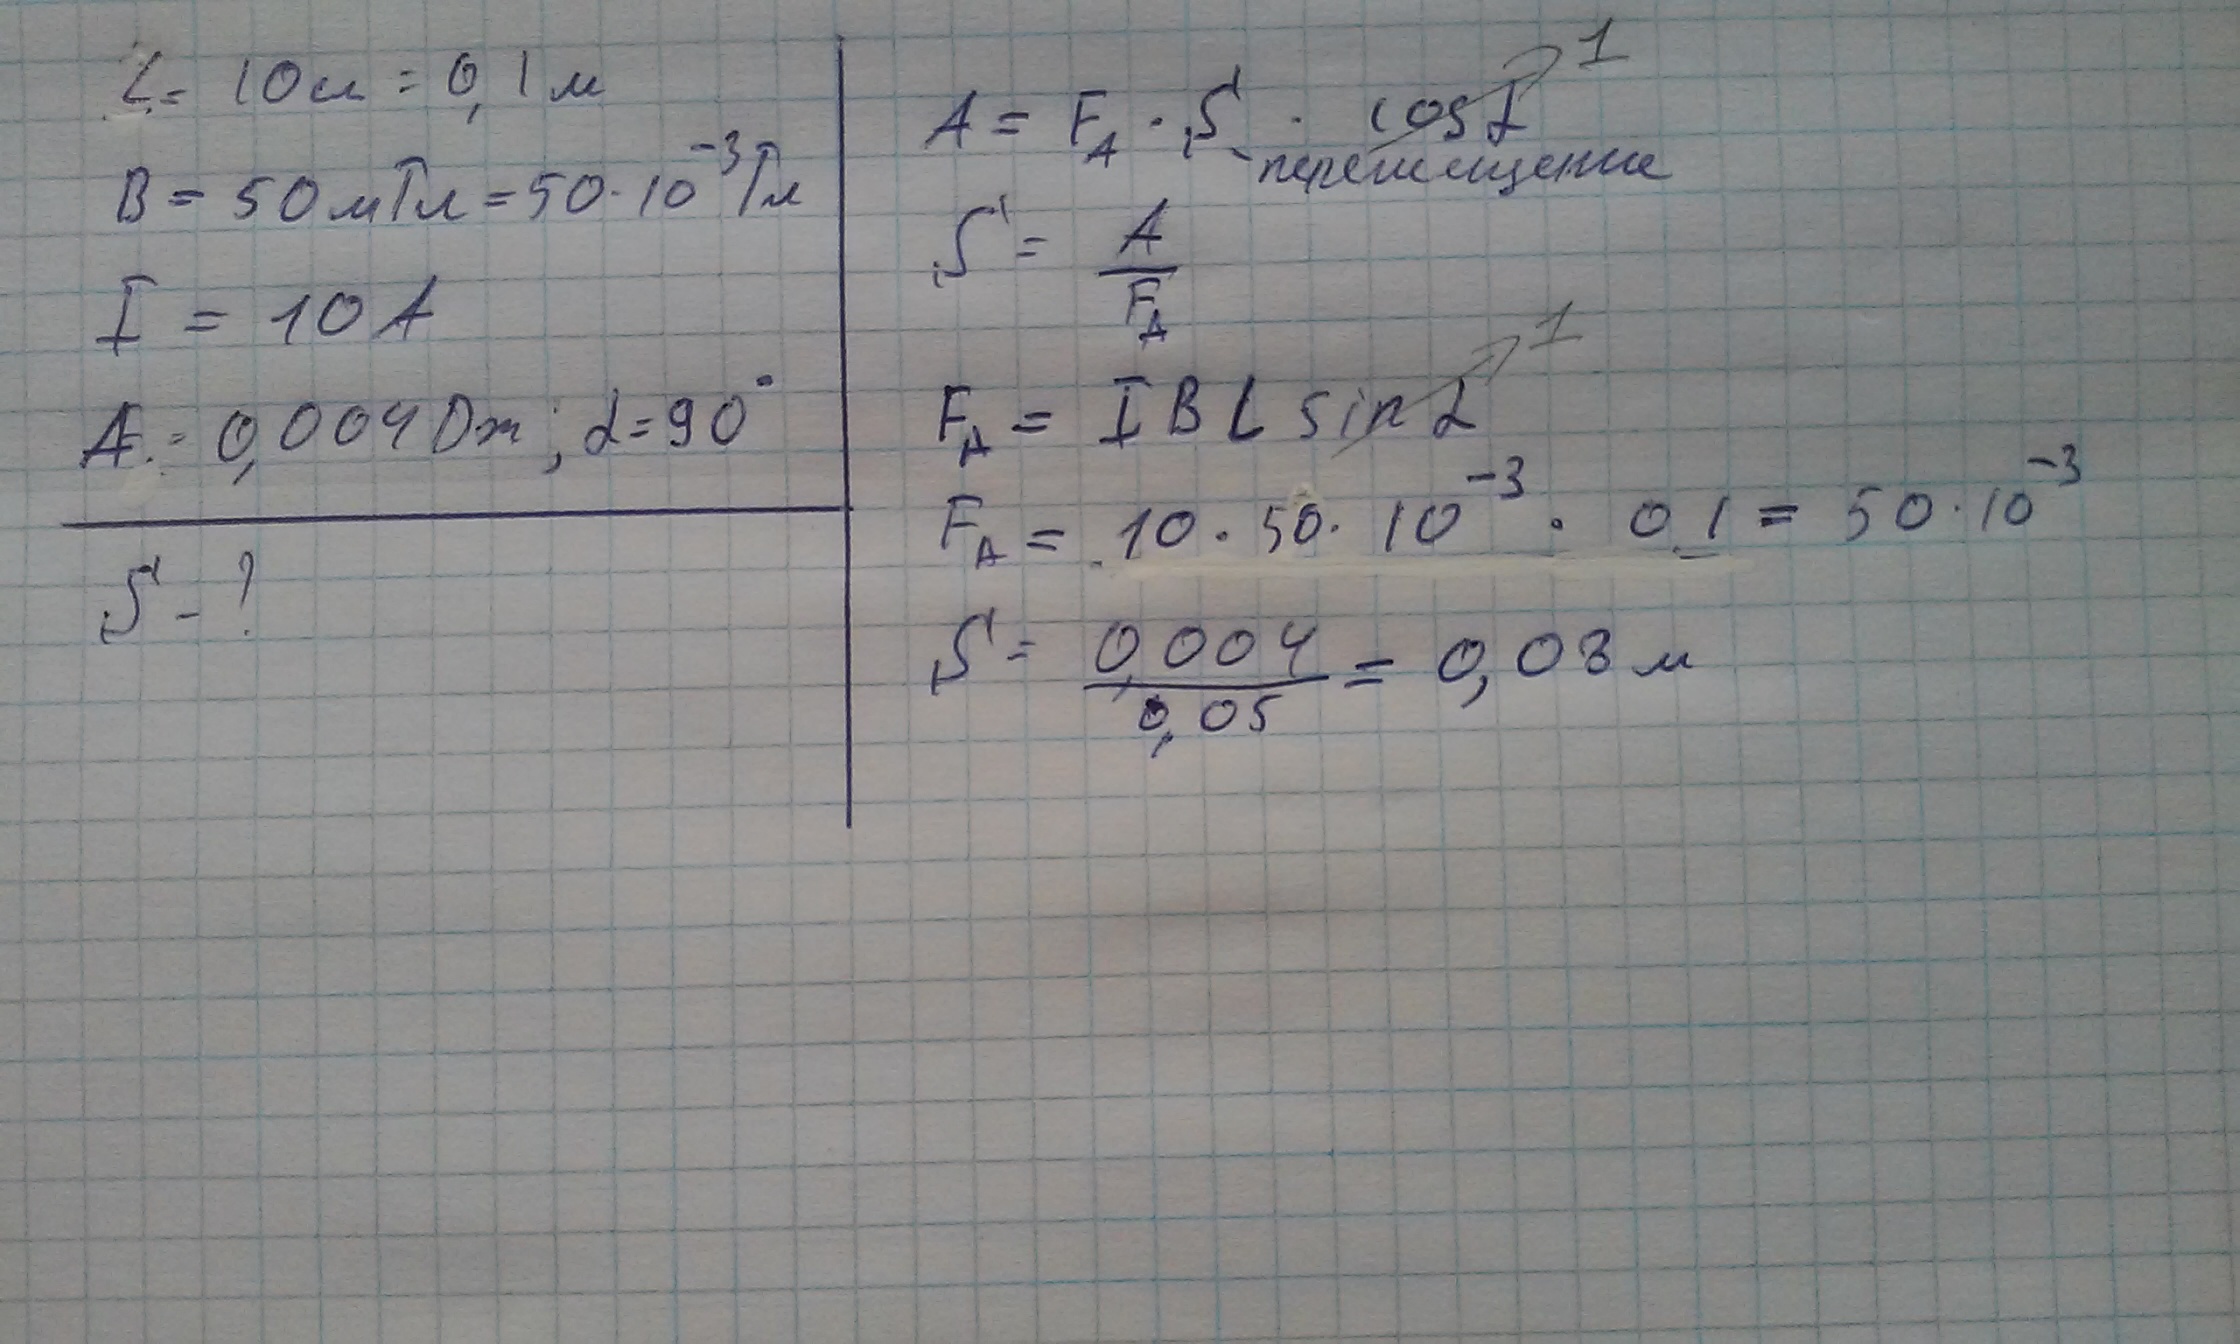 L = 10 см = 0,1 м
B = 50 мТл = 50·10⁻³ Тл
I = 10 А
A = 0,004 Дж; α = 90°
S - ?
A = F_A · S · cos α → 1
перемещение
S = A / F_A
F_A = I B L sin α → 1
F_A = 10 · 50 · 10⁻³ · 0,1 = 50 · 10⁻³
S = 0,004 / 0,05 = 0,08 м